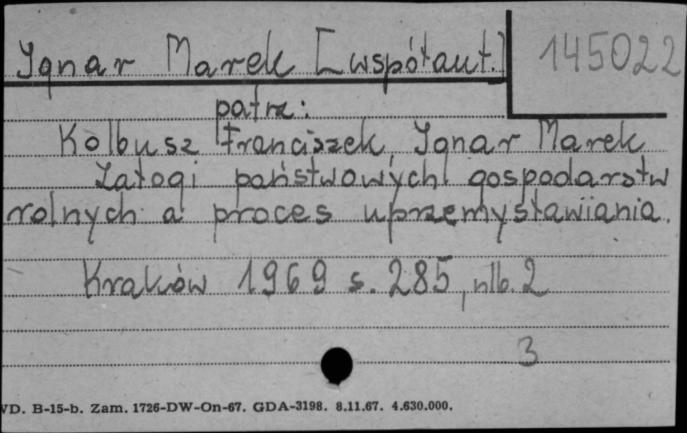 Ignar Marek [współaut.] 145022
patrz:
Kolbusz Franciszek, Ignar Marek
Załogi państwowych gospodarstw
rolnych a proces uprzemysławiania.
Kraków 1969 s. 285, nlb. 2
3
WD. B-15-b. Zam. 1726-DW-On-67. GDA-3198. 8.11.67. 4.630.000.